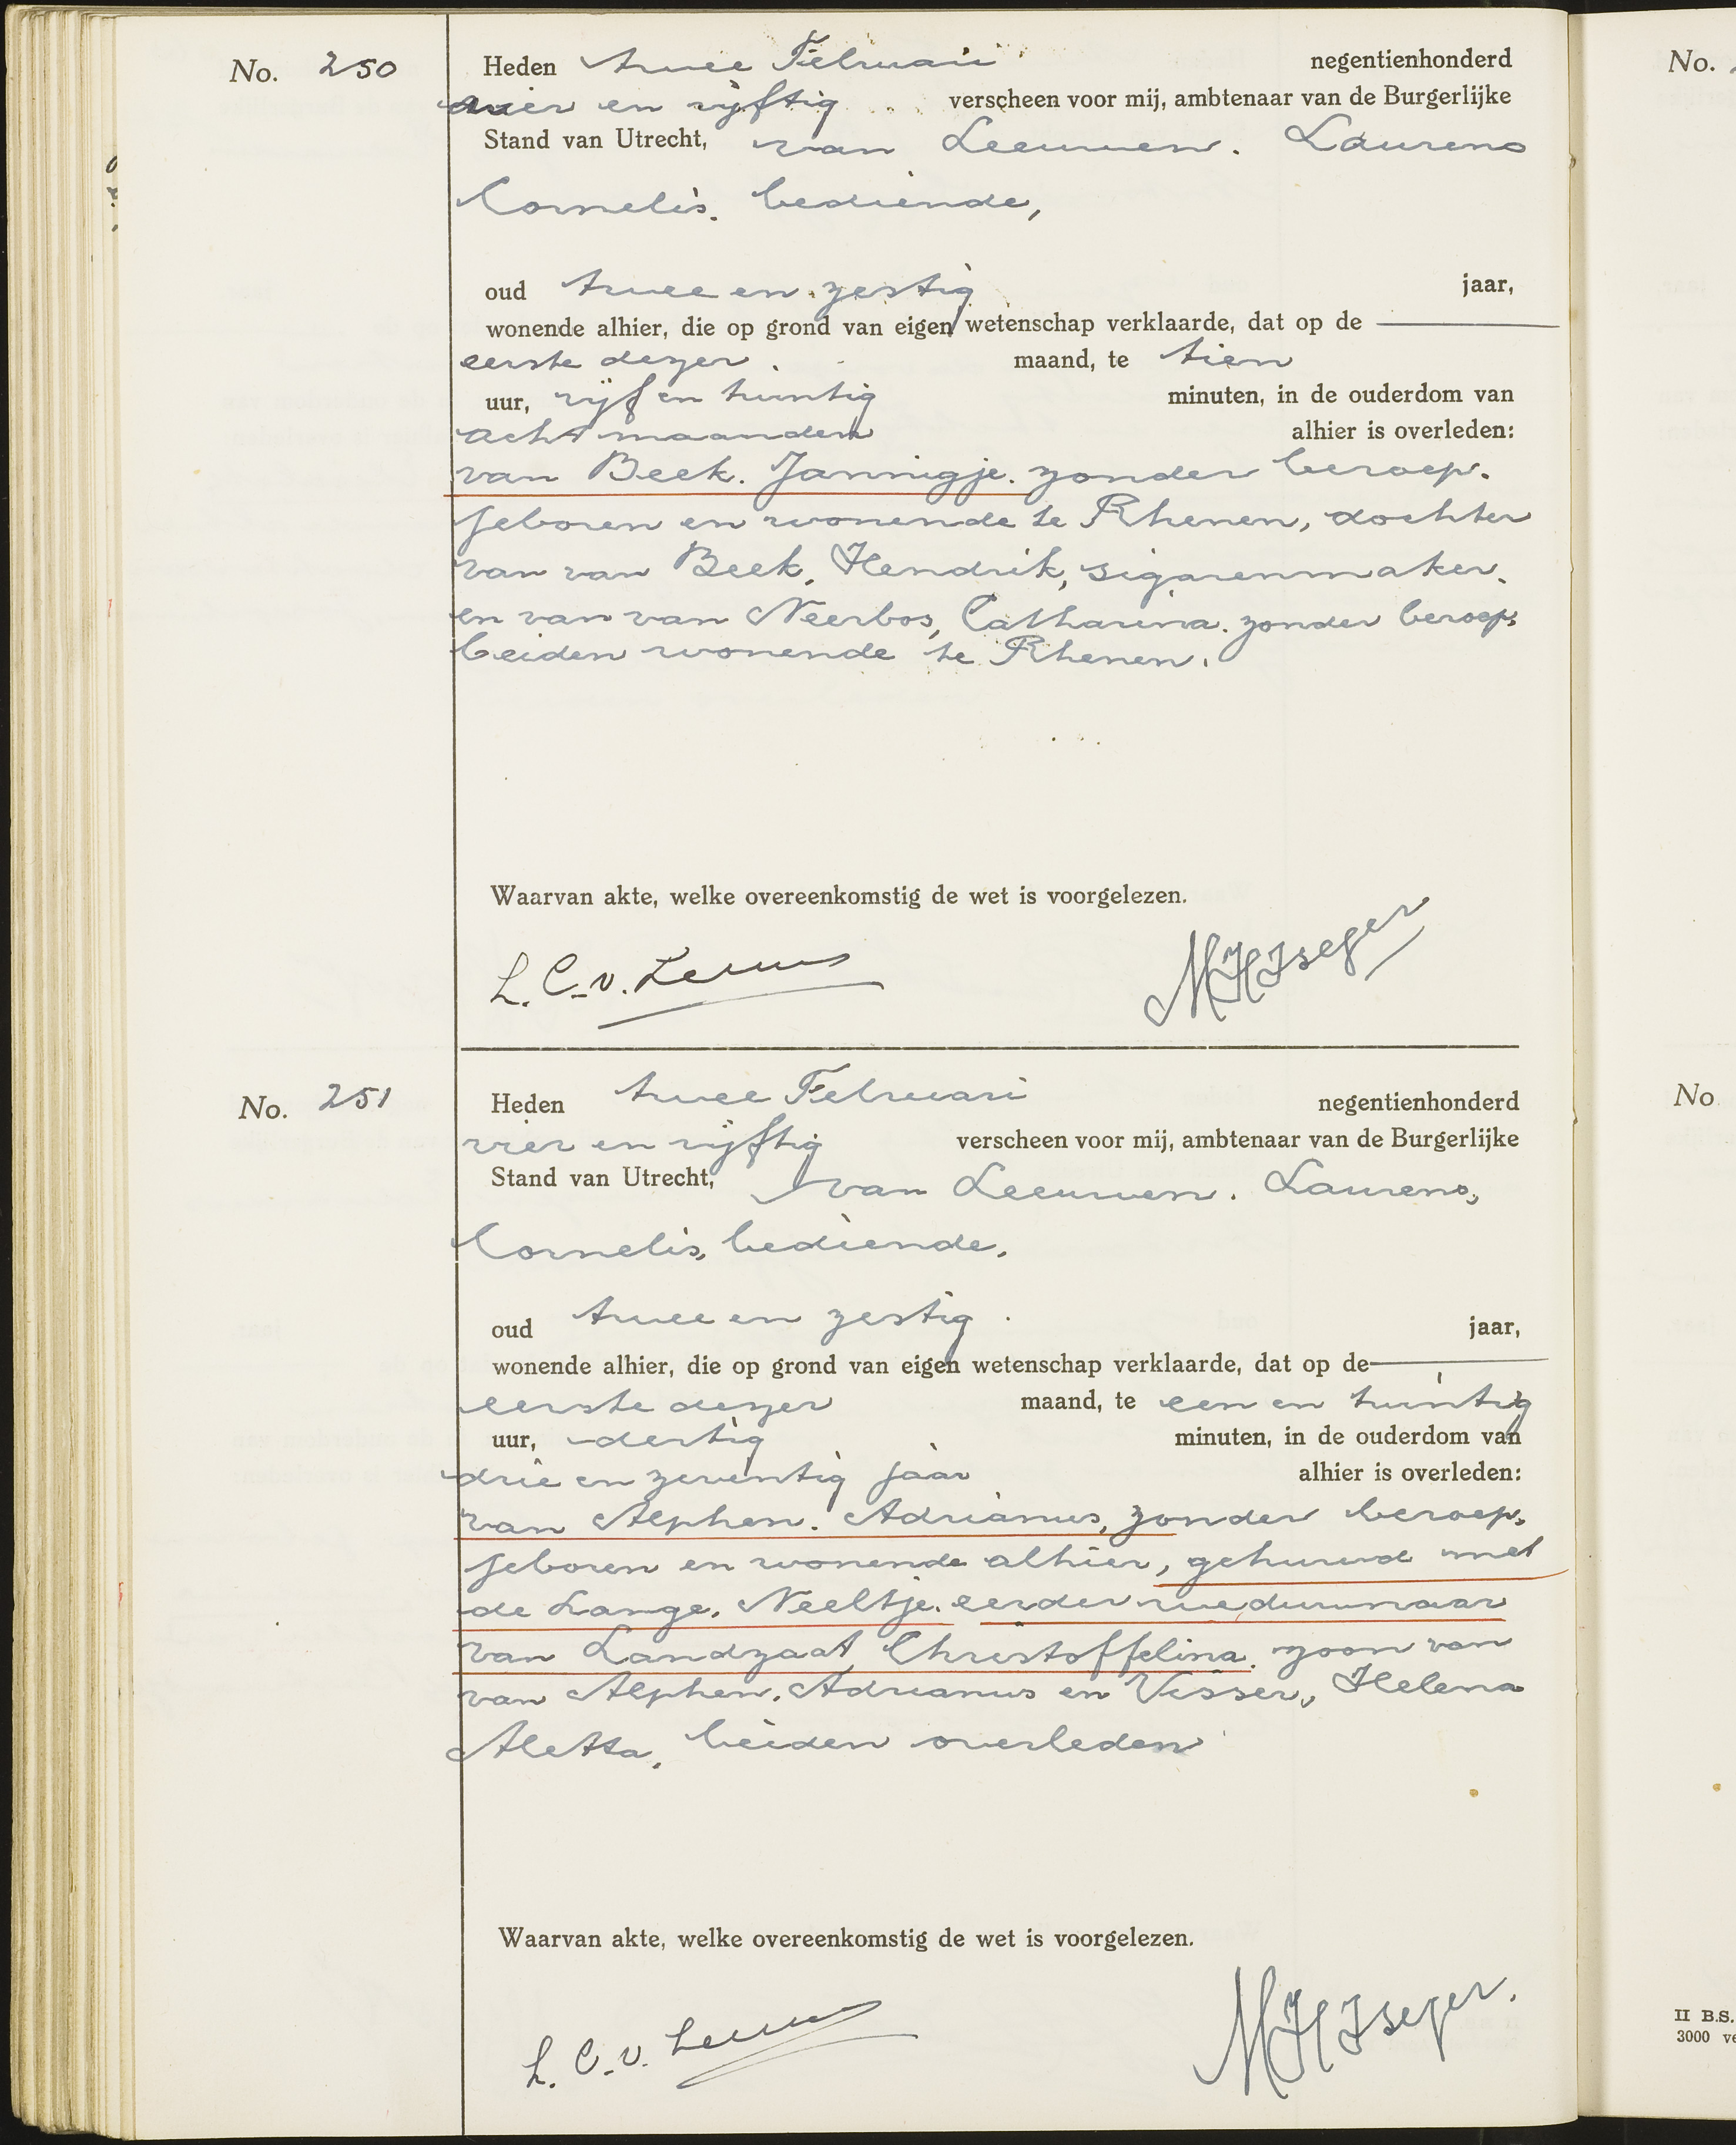 No. 250
Heden twee Februari negentienhonderd
vier en vijftig verscheen voor mij, ambtenaar van de Burgerlijke
Stand van Utrecht, van Leeuwen. Laurens
Cornelis. bediende,
oud twee en zestig jaar,
wonende alhier, die op grond van eigen wetenschap verklaarde, dat op de
eerste dezer maand, te tien
uur, vijf en twintig minuten, in de ouderdom van
acht maanden alhier is overleden:
van Beek. Jannigje. zonder beroep.
geboren en wonende te Rhenen, dochter
van van Beek, Hendrik, sigarenmaker.
en van van Neerbos, Catharina. zonder beroep,
beiden wonende te Rhenen.
Waarvan akte, welke overeenkomstig de wet is voorgelezen.
L. C. v. Leeuwen MHIseger
No. 251
Heden twee Februari negentienhonderd
vier en vijftig verscheen voor mij, ambtenaar van de Burgerlijke
Stand van Utrecht, van Leeuwen. Laurens,
Cornelis, bediende,
oud twee en zestig jaar,
wonende alhier, die op grond van eigen wetenschap verklaarde, dat op de
eerste dezer maand, te een en twintig
uur, dertig minuten, in de ouderdom van
drie en zeventig jaar alhier is overleden:
van Alphen. Adrianus, zonder beroep,
geboren en wonende alhier, gehuwd met
de Lange, Neeltje. eerder weduwnaar
van Landzaat, Christoffelina. zoon van
van Alphen, Adrianus en Visser, Helena
Aletta, beiden overleden
Waarvan akte, welke overeenkomstig de wet is voorgelezen.
L. C. v. Leeuwen MHIseger.
No.
No
II B.S.
3000 ve